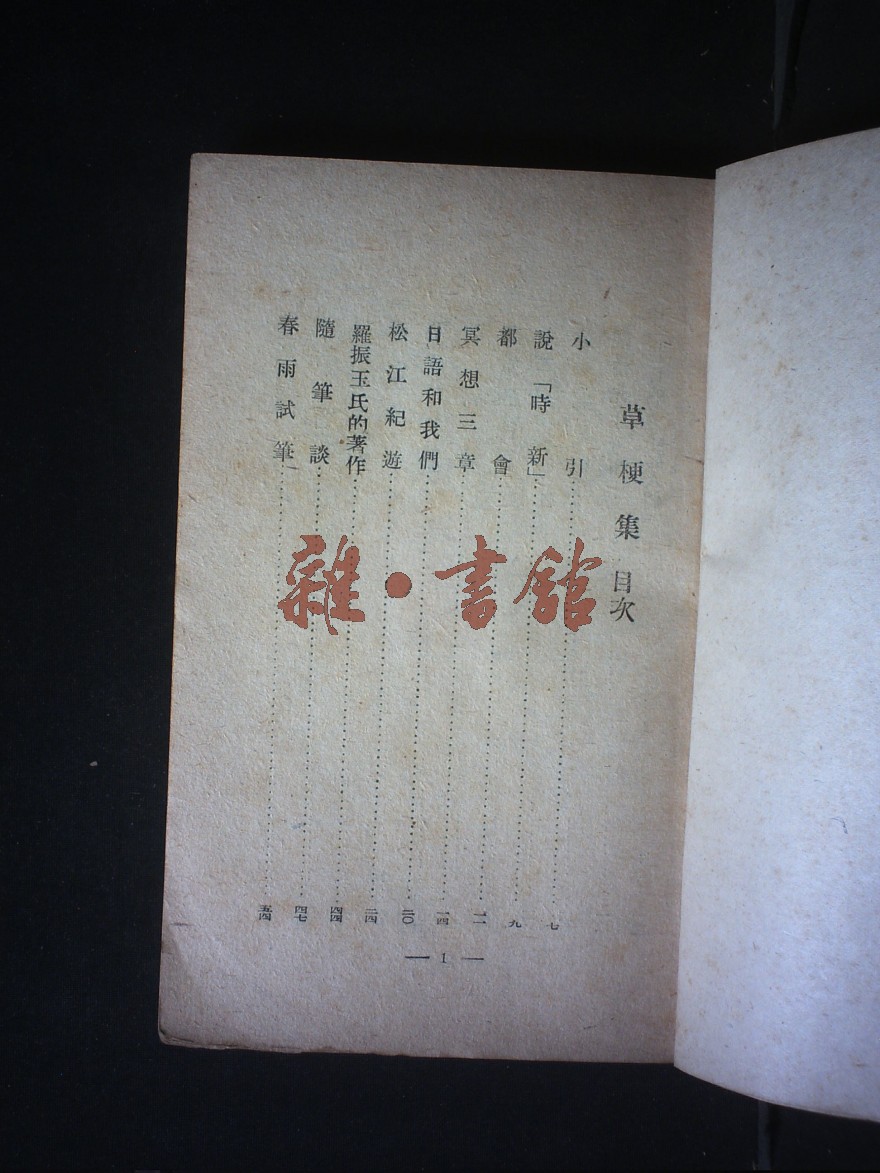 草梗集目次
小引……七
說「時新」……九
都會……一二
冥想三章……一四
日語和我們……二〇
松江紀遊……二四
羅振玉氏的著作……四四
隨筆談……四七
春雨試筆……五四
— 1 —
雜·書館